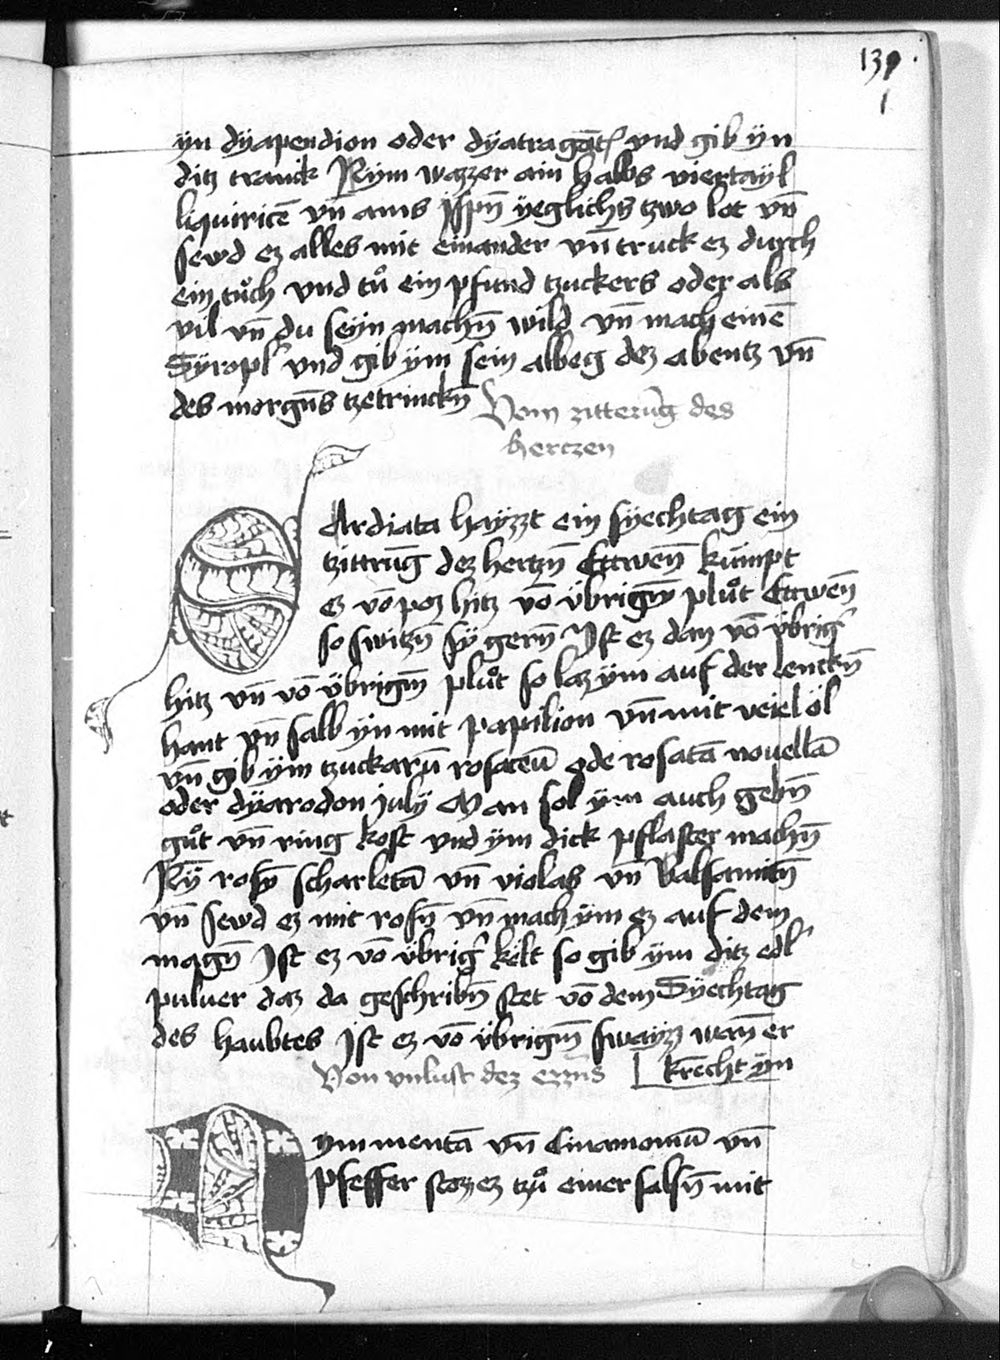 139
1
ÿn dÿapendion oder dÿatragāt vnd gib ÿn
ditz tranck Nÿm wazzer ain halbs viertaÿl
liquiricē vn̄ anis Jspn̄ ÿeglichs tzwo lot vn̄
sewd ez alles mit einander vn̄ truck ez durch
ein tuͦch vnd tuͦ ein pfund tzuckers oder als
vil vn̄ du seÿn machn̄ wild vn̄ mach einē
Sÿropl vnd gib ÿm sein albeg dez abentz vn̄
des morgn̄s tzetrinckn̄ Vom zitterūg des
hertzen
CArdiata haÿzzt ein sÿechtag ein
tzittrūg dez hertzn̄ Ettwen̄ kūmpt
ez vō poz hitz vō v̈brigm̄ pluͦt Ettwen̄
so switzn̄ sÿ gern̄ Jst ez dan vō v̈brig̕
hitz vn̄ vō v̈brigm̄ pluͦt so laz ÿm auf der lenckn̄
hant vn̄ salb ÿn mit papilion vn̄ mit veiel öl
vn̄ gib ÿm tzuckarū rosaceū ode rosatā nouellā
oder dÿarodon julÿ Man sol ÿm auch gebn̄
guͦt vn̄ ring kost vnd ÿm dick pflaster machn̄
Nÿ rosn̄ scharletā vn̄ violas vn̄ Balsamitn̄
vn̄ sewd ez mit rosn̄ vn̄ mach ÿm ez auf dem
magn̄ Jst ez vō v̈brig̕ kelt so gib ÿm ditz edl̕
puluer daz da geschribn̄ stet vō dem Sÿechtag
des haubtes Jst ez vō v̈brigm̄ swaÿzz wan̄ er
Von vnlust dez ezzn̄s krēcht ÿm
NYm mentā vn̄ Cinamomū vn̄
Pfeffer stoz ez tzuͦ einer salsn̄ mit